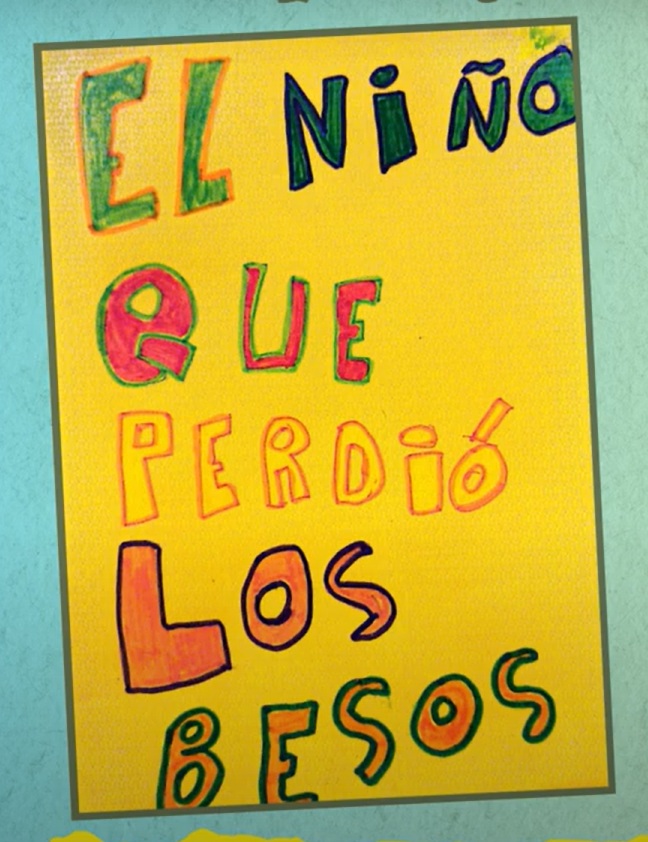 EL NiÑO
QUE
PERDiÓ
LOS
BESOS